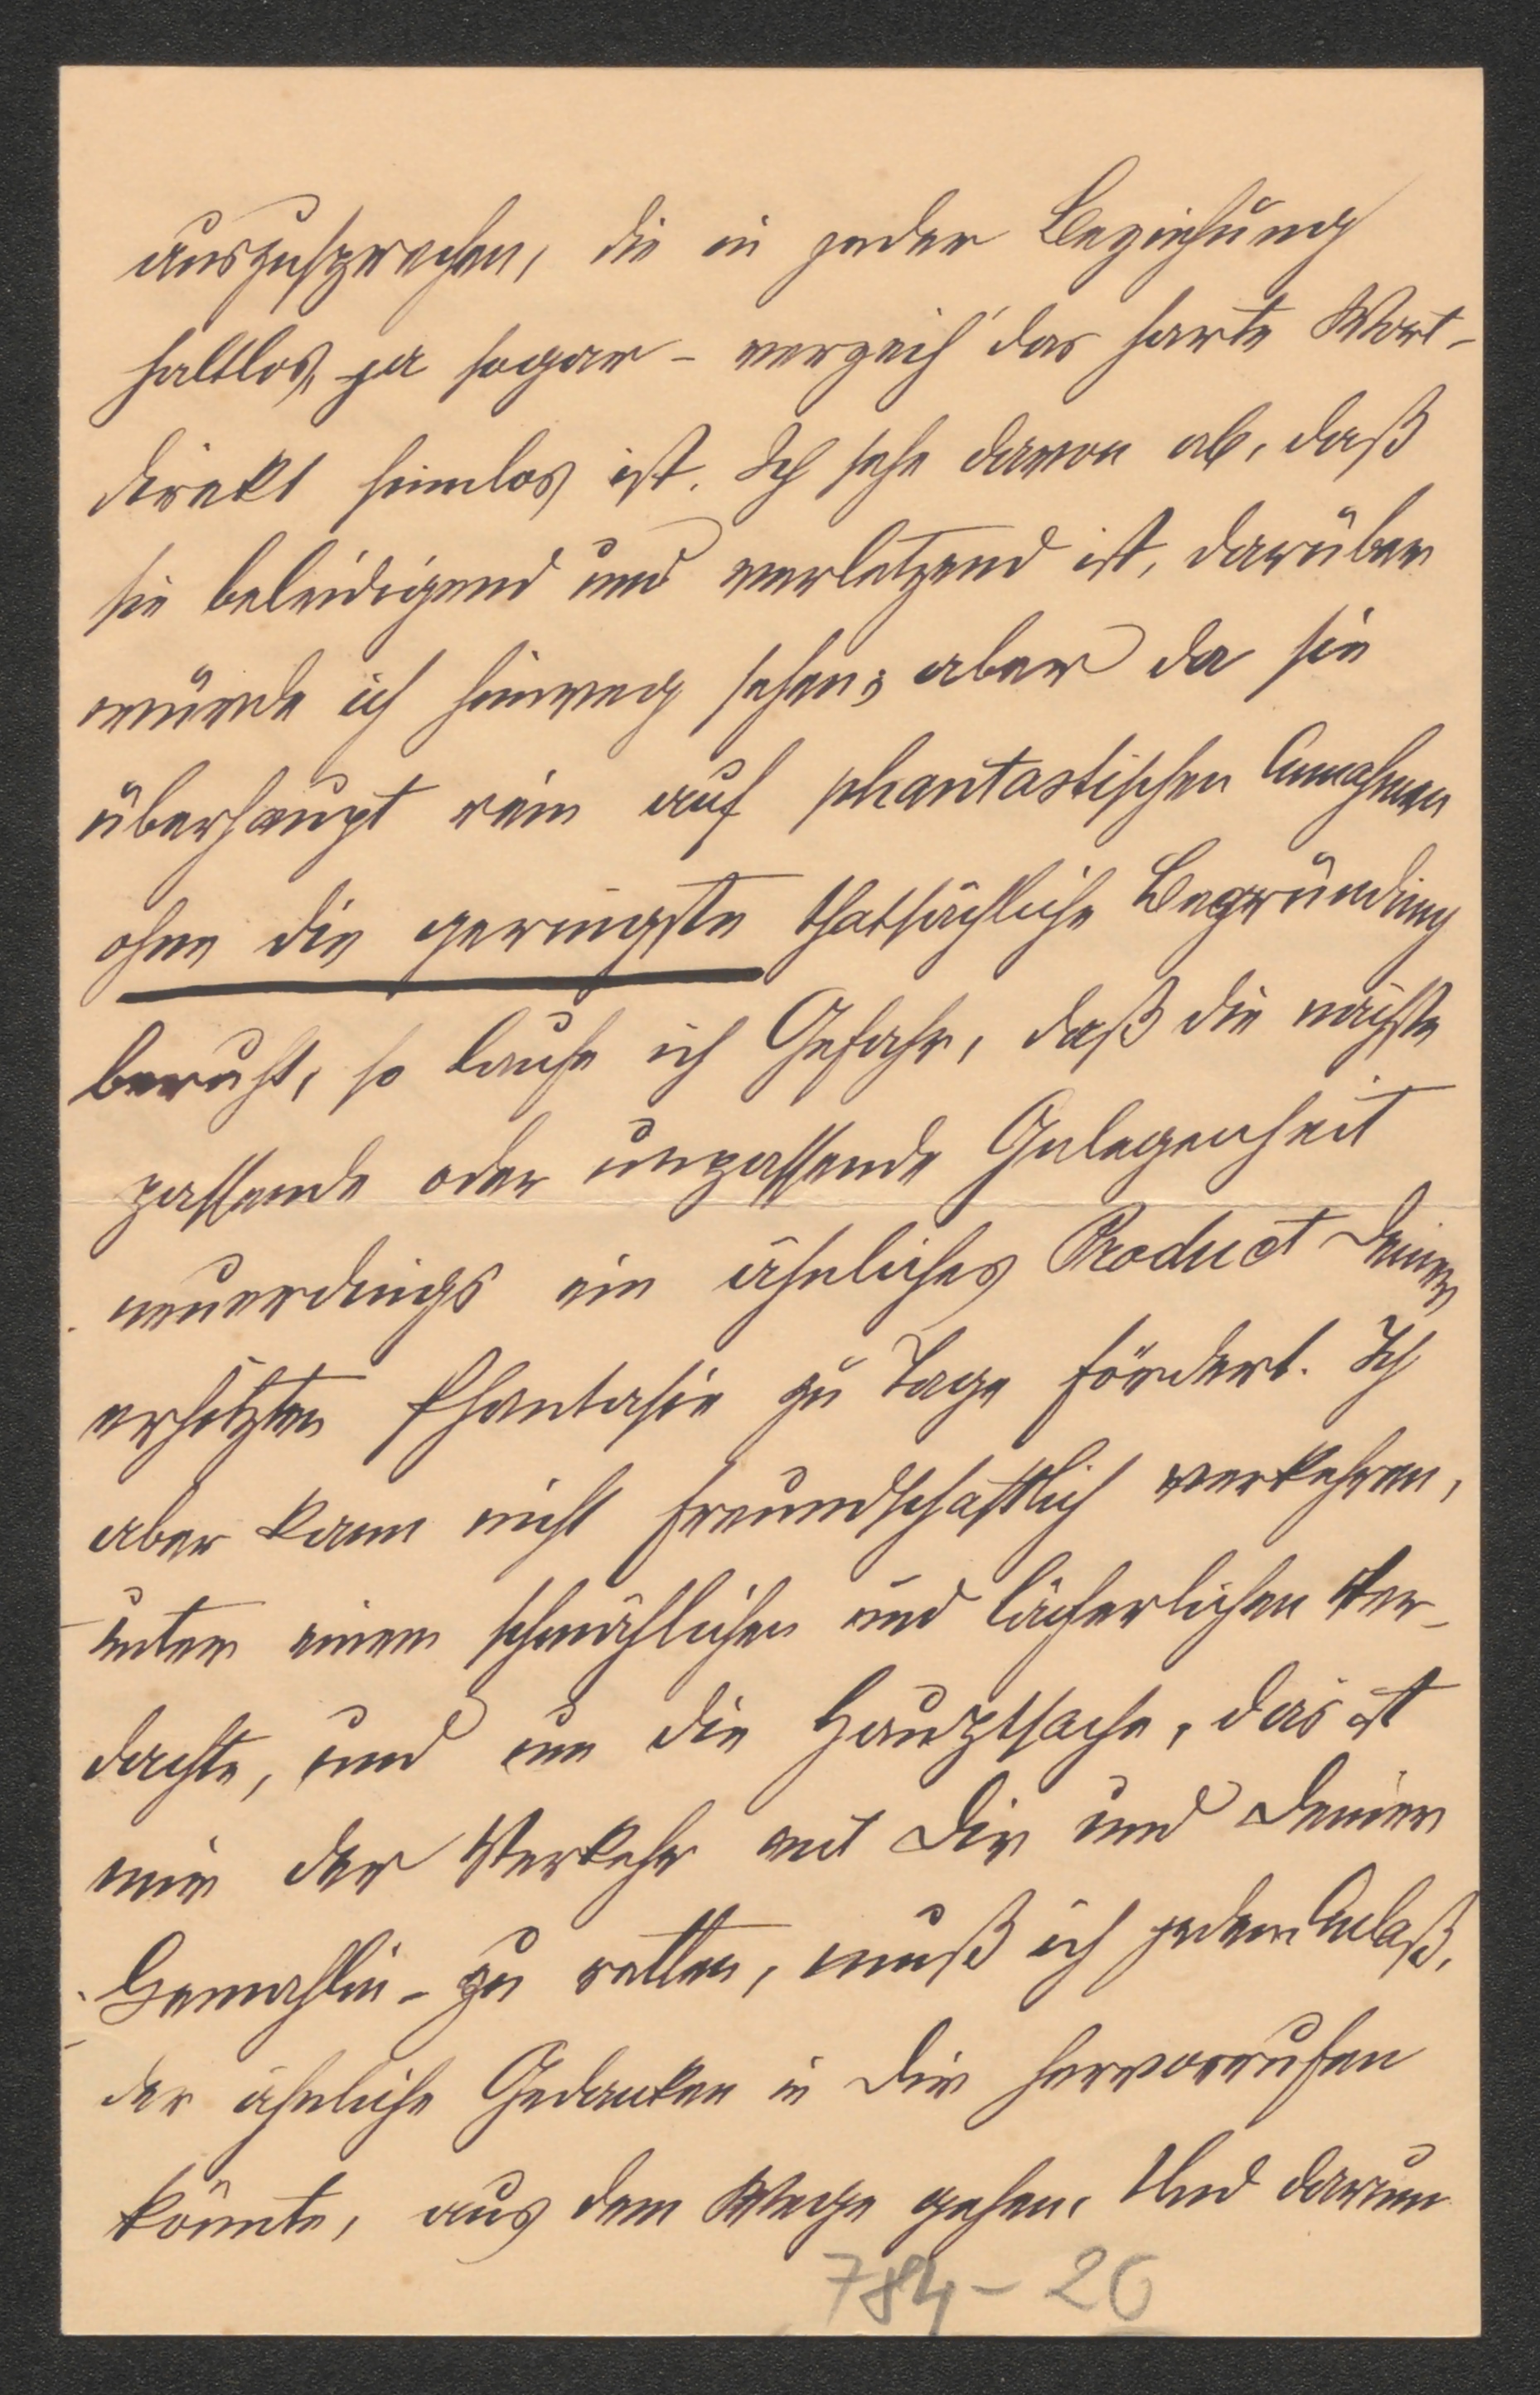 auszusprechen, die in jeder Beziehung
haltlos, ja sogar – verzeih' das harte Wort –
direkt sinnlos ist. Ich sehe davon ab, daß
sie beleidigend und verletzend ist, darüber
würde ich hinweg sehen; aber da sie
überhaupt rein auf phantastischen Annahmen
ohne die geringste thatsächliche Begründung
beruht, so laufe ich Gefahr, daß die nächste
passende oder unpassende Gelegenheit
neuerdings ein ähnliches Product Deiner
erhitzten Phantasie zu Tage fördert. Ich
aber kann nicht freundschaftlich verkehren,
unter einem schmählichen und lächerlichen Ver-
dachte, und um die Hauptsache, das ist
mir der Verkehr mit Dir und Deiner
Gemahlin – zu retten, muß ich jedem Anlaß,
der ähnliche Gedanken in Dir hervorrufen
könnte, aus dem Wege gehen. Und darum
784 – 26